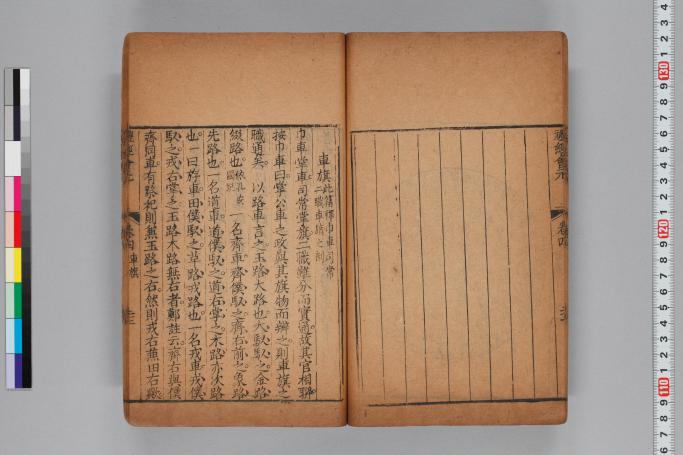 禮經會元
卷四
車旗此篇釋巾車司常二職車旗之制
巾車掌車司常掌旗二職雖分而實通故其官相聯
按巾車曰掌公車之政與其旗物而辨之則車旗之
職通矣 以路車言之玉路大路也大馭馭之金路
綴路也 一名齊車齊僕馭之齊右前之象路
先路也一名道車道僕馭之道右掌之木路亦次路
也一曰斿車田僕馭之革路戎路也一名戎車戎僕
馭之戎右掌之玉路木路無右者鄭註云齊右與僕
齊同車有祭祀則無玉路之右然則戎右兼田右歟
禮經會元
卷四 車旗
130
120
110